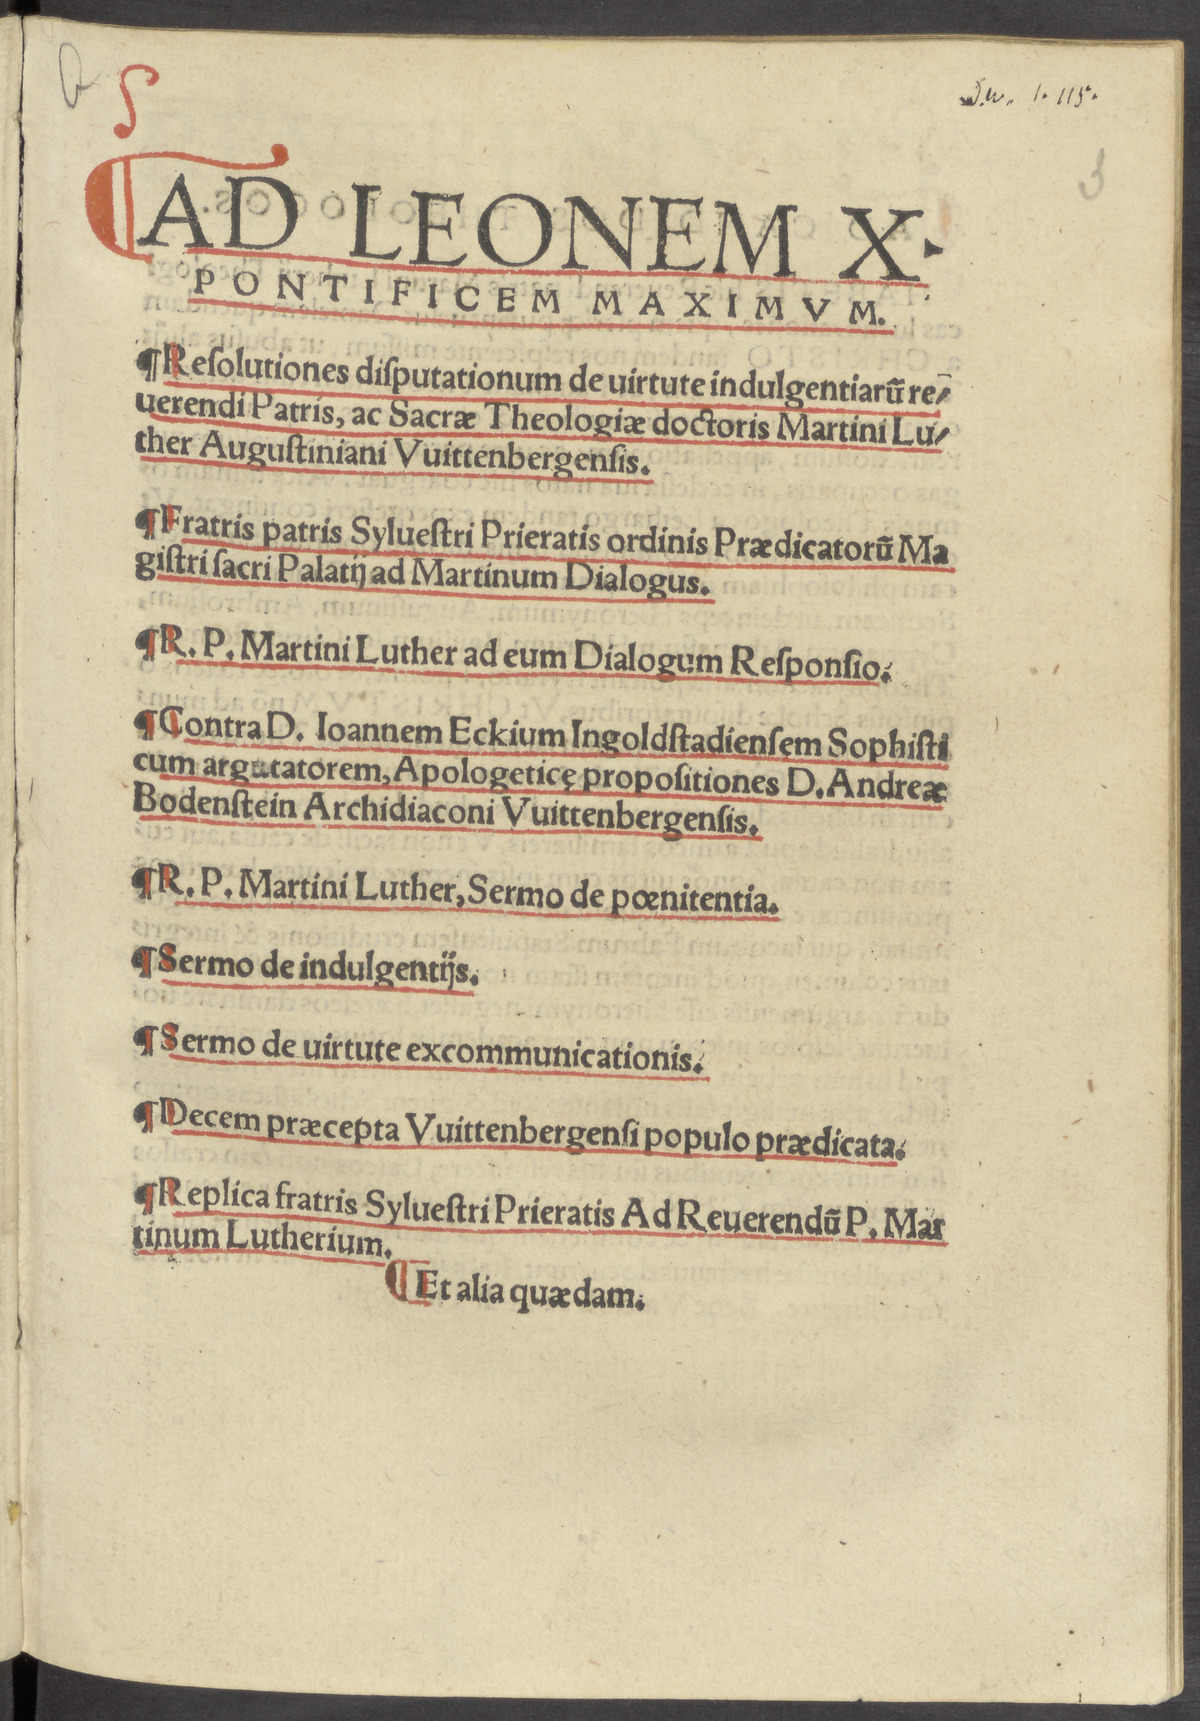 AD LEONEM X.
PONTIFICEM MAXIMVM.
¶Reſolutiones diſputationum de uirtute indulgentiarū re/
uerendi Patris, ac Sacræ Theologiæ doctoris Martini Lu/
ther Auguſtiniani Vuittenbergenſis.
¶Fratris patris Sylueſtri Prieratis ordinis Prædicatorū Ma
giſtri ſacri Palatij ad Martinum Dialogus.
¶R. P. Martini Luther ad eum Dialogum Reſponſio.
¶Contra D. Ioannem Eckium Ingoldſtadienſem Sophiſti
cum argutatorem, Apologeticę propoſitiones D. Andreæ
Bodenſtein Archidiaconi Vuittenbergenſis.
¶R. P. Martini Luther, Sermo de pœnitentia.
¶Sermo de indulgentijs.
¶Sermo de uirtute excommunicationis.
¶Decem præcepta Vuittenbergenſi populo prædicata.
¶Replica fratris Sylueſtri Prieratis Ad Reuerendū P. Mar
tinum Lutherium.
¶Et alia quædam.